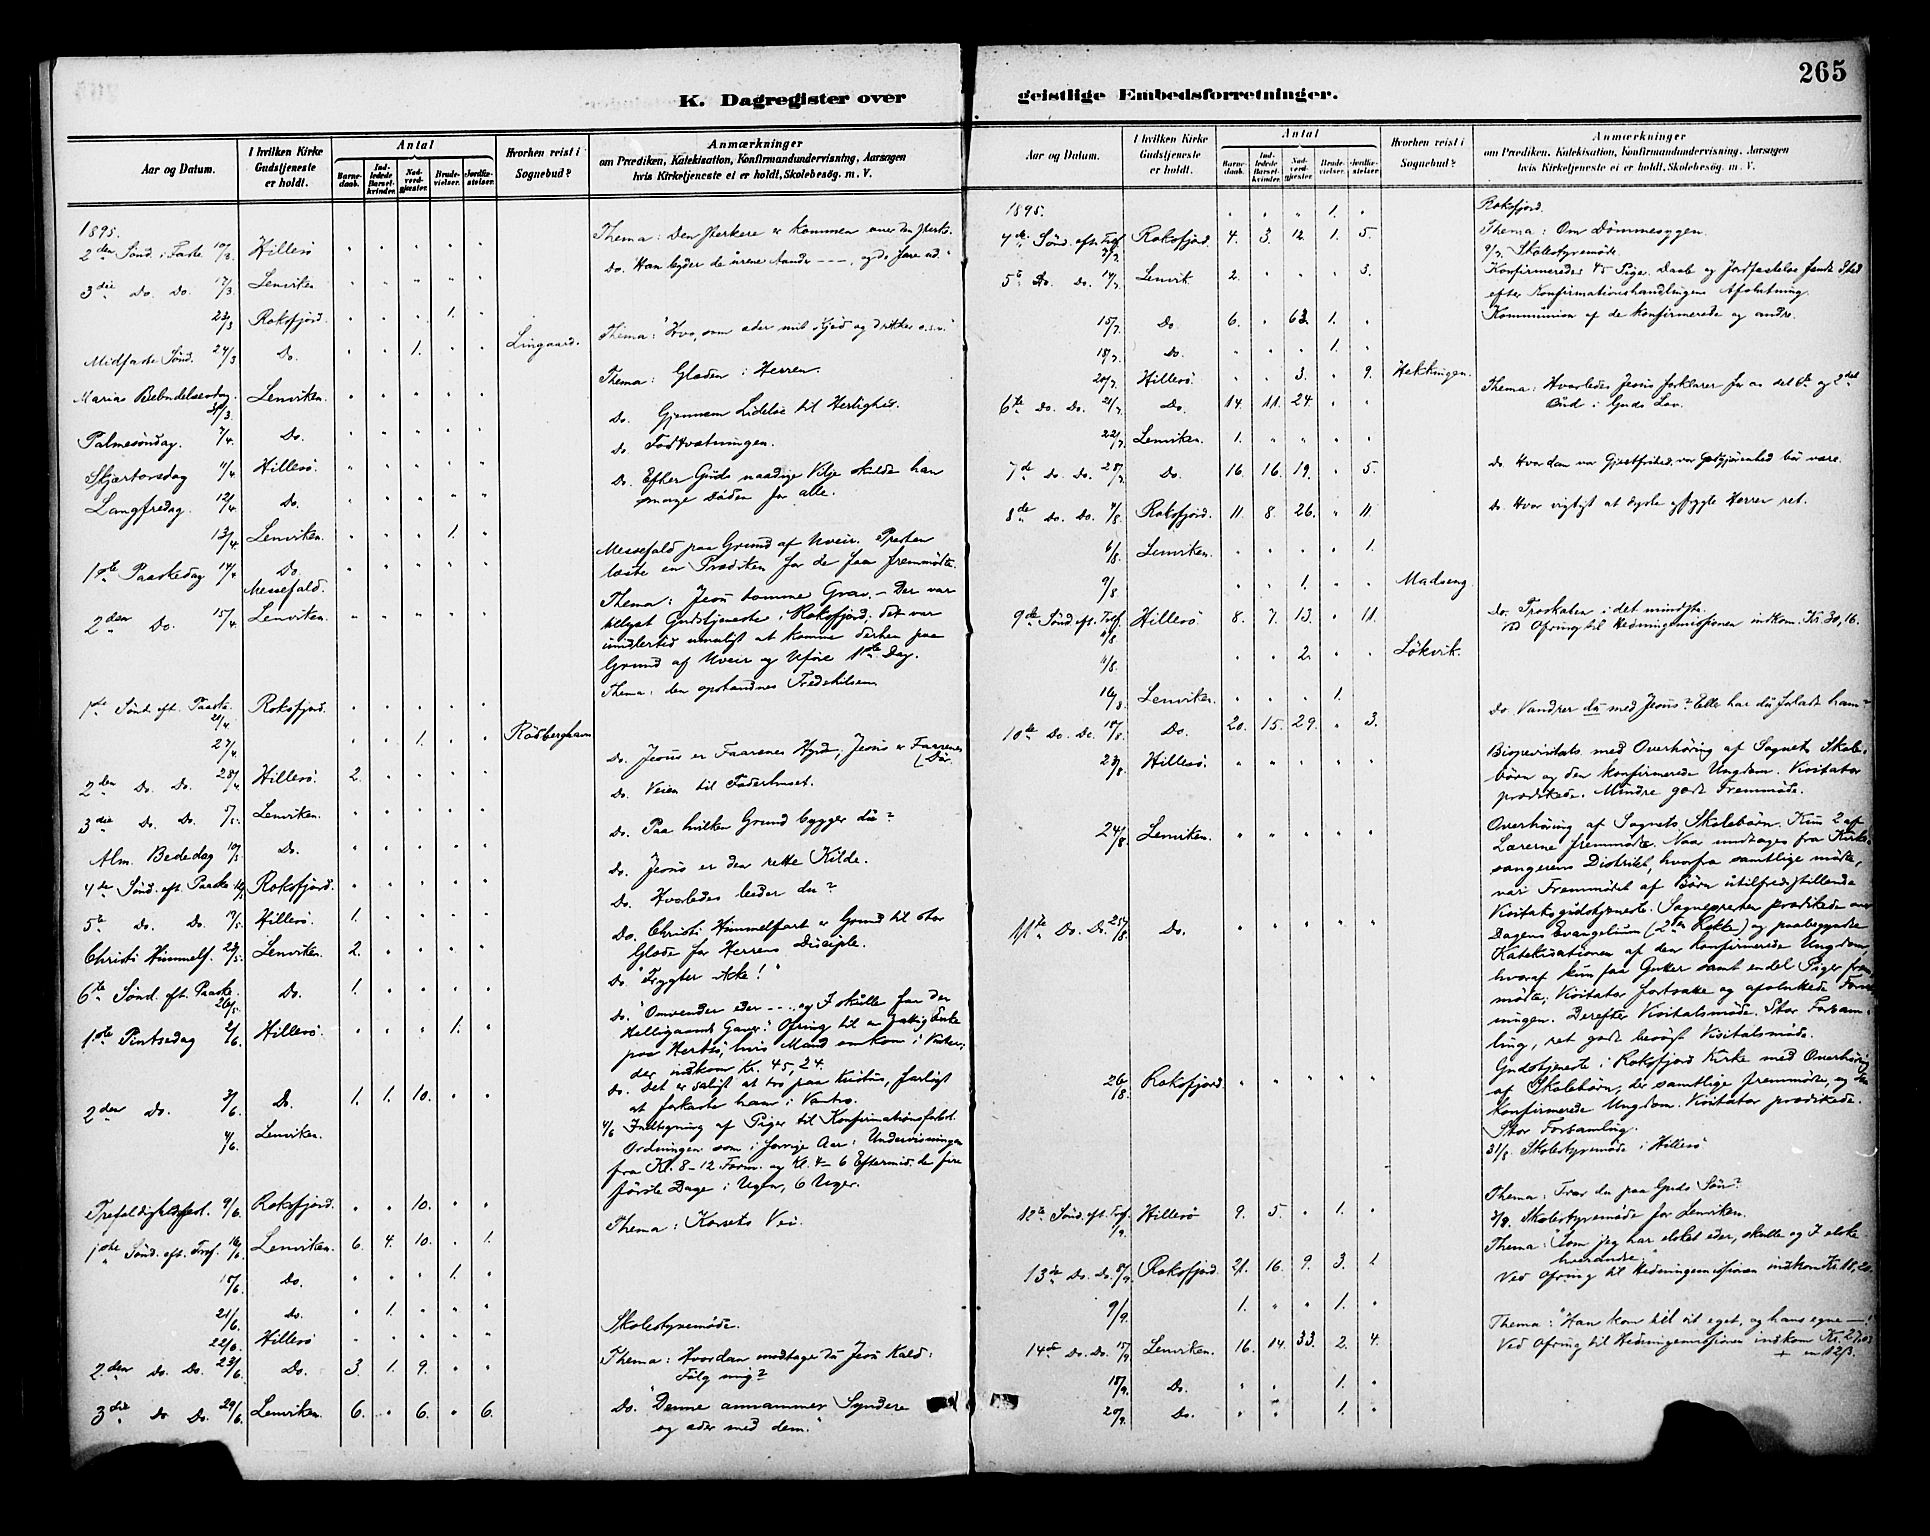 265
K. Dagregister over geistlige Embedsforretninger.
Aar og Datum. I hvilken Kirke Gudstjeneste er holdt. Antal Barnedaab. Indledede Barselkvinder. Nadverdgjæster. Brudevielser. Jordfæstelser Hvorhen reist i Sognebud? Anmærkninger om Prædiken, Katekisation, Konfirmandundervisning, Aarsagen hvis Kirketjeneste ei er holdt, Skolebesøg. m. V.
1895.
2den Sønd. i Faste 10/3. Hillesø " " " " " Thema: Den sterkere er kommen over den sterke.
3die Do. Do. 17/3 Lenviken " " " " " Do. Han byder de urene Aander ---, og de fare ud."
23/3 Roksfjord. " " " 1. "
Midfaste Sønd. 24/3 Do. " " 1. " " Lingaard. Thema: "Hvo, som æder mit Kjød og drikker o.s.v."
Marias Bebudelsesdag. 31/3. Lenviken. " " " " " Thema: Glæden i Herren.
Palmesøndag. 7/4. Do. " " " " " Do. Gjennem Lidelse til Herlighed.
Skjærtorsdag 11/4 Hillesø. " " " " " Do. Fodtvætningen.
Langfredag. 12/4 Do. " " " " " Do. Efter Guds naadige Vilje skulde han
smage Døden for alle.
13/4. Lenviken. " " " 1. "
1ste Paaskedag 14/4 Do. Messefald. Messefald paa Grund af Uveir. Presten
læste en Prædiken for de faa fremmødte.
2den Do. 15/4. Lenviken. " " " " " Thema: Jesu tomme Grav. - Der var
berlyst Gudstjeneste i Roksfjord; det var
imidlertid umuligt at komme derhen paa
Grund af Uveir og Uføre 1ste Dag.
1ste Sønd. eft. Paaske. 21/4. Roksfjord. " " " " " Thema: den opstandnes Fredshilsen
27/4 " " 1. " " Rødberghavn
2den Do. Do. 28/4 Hillesø. 2. " " " " Do. Jesus er Faarenes Hyrde, Jesus er Faarenes Dør.
3die Do. Do. 5/5. Lenviken. " " " " " Do. Veien til Faderhuset.
Alm. Bededag 10/5 Do. " " " " " Do. Paa hvilken Grund bygger du?
4de Sønd. eft. Paaske 12/5 Roksfjord. " " " " " Do. Jesus er den rette Kilde.
5te Do. Do. 19/5 Hillesø. 1. " " " " Do. Hvorledes beder du?
Christi Himmelf. 23/5. Lenviken. 2. " " " " Do. Christi Himmelfart er Grund til stor
Glæde for Herrens Disciple.
6te Sønd. eft. Paaske. 26/5. Do. 1. " " " " Do. "Frygter ikke!"
1ste Pintsedag 2/6 Hillesø. " " " 1. " Do. "Omvender eder --- og I skulle faa den
Helligaands Gaver." Ofring til en fattig Enke
paa Hersø, hvis Mand omkom i Vinter;
der indkom Kr. 45,24.
2den Do. 3/6. Do. 1. 1. 10. " " Do. Det er saligt at tro paa Kristus, farligt
at forkaste ham i Vantro.
4/6. Lenviken. 4/6 Indtegning af Piger til Konfirmationsforbr.
Ordningen som i forrige Aar: Undervisningen
fra Kl. 8-12 Form. og Kl. 4-6 Eftermid. de fire
første Dage i Ugen, 6 Uger.
Trefoldighedsfest. 9/6. Roksfjord. " " 10. " " Thema: Korsets Vei.
1ste Sønd. eft. Tref. 16/6 Lenviken. 6. 4. 10. " 1.
18/6. Do. " " " 1. "
21/6. Do. " 1. " " "
22/6. Hillesø " " " " " Skolestyremøde.
2den Do. Do. 23/6. Do. 3. 1. 9. " " Thema: Hvordan modtage du Jesu Kald:
Følg mig?
3die Do. Do. 29/6. Lenviken. 6. " 6. " 6. Do. "Denne annammer Syndere
og æder med dem."
Aar og Datum. I hvilken Kirke Gudstjeneste er holdt. Antal Barnedaab. Indledede Barselkvinder. Nadverdgjæster. Brudevielser. Jordfæstelser Hvorhen reist i Sognebud? Anmærkninger om Prædiken, Katekisation, Konfirmandundervisning, Aarsagen hvis Kirketjeneste ei er holdt, Skolebesøg. m. V.
1895. " " " 1. " Roksfjord.
4de Sønd. eft. Tref. 7/7. Roksfjord. 4. 3. 12. 1. 5. Thema: Om Dømmesygen.
9/7. Skolestyremøde.
5te Do. Do. 14/7. Lenvik. 2. " " " 3. Konfirmeredes 45 Piger. Daab og Jordfæstelse fandt Sted
efter Konfirmationshandlingens Afslutning.
15/7. Do. 6. " 63. 1. " Kommunion af de konfirmerede og andre.
18/7. Do. " " " 1. "
20/7. Hillesø. " " 3. " 9. Hekkingen.
6te Do. Do. 21/7. Do. 14. 11. 24. " " Thema: Hvorledes Jesus forklarer for os det 1ste og 2det
Bud i Guds Lov.
22/7. Lenviken. 1. " " " "
7de Do. Do. 28/7. Do. 16. 16. 19. " 5. Do. Hvordan vor Gjestfrihed, vor Godgjørenhed bør være.
8de Do. Do. 4/8. Roksfjord. 11. 8. 26. " 11. Do. Hvor vigtigt at dyrke og frygte Herren ret.
6/8. Lenviken. " " " " 1.
9/8 " " 1. " " Madseng.
9de Sønd. eft. Tref. Hillesø. 8. 7. 13. " 11. Do. Troskaben i det mindste.
Ved Ofring til Hedningemissionen indkom Kr. 30,16.
11/8. " " 2. " " Løkvik.
16/8 Lenviken. " " " 1. "
10de Do. Do. 18/8. Do. 20. 15. 29. " 3. Do. Vandrer du med Jesus? Eller har du forladt ham?
23/8. Hillesø. " " " " " Bispevisitats med Overhøring af Sognets Skole-
børn og den konfirmerede Ungdom. Visitator
prædikede. Mindre godt Fremmøde.
24/8 Lenviken. " " " " " Overhøring af Sognets Skolebørn. Kun 2 af
Lærerne fremmødte. Naar undtages fra Kirke-
sangerens Distrikt, hvorfra samtlige mødte,
var Fremmødet af Børn utilfredsstillende
11te Do. Do. 25/8 Do. " " " " " Visitatsgudstjeneste. Sognepresten prædikede over
Dagens Evangelium (2den Række) og paabegyndte
Katekisationen af den konfirmerede Ungdom,
hvoraf kun faa Gutter samt endel Piger frem-
mødte; Visitator fortsatte og afsluttede Forret-
ningen. Derefter Visitatsmøde. Stor Forsam-
ling, ret godt besøgt Visitatsmøde.
26/8 Roksfjord. " " " " " Gudstjeneste i Roksfjord Kirke med Overhøring
af Skolebørn, der samtlige fremmødte, og den
Konfirmerede Ungdom. Visitator prædikede.
Stor Forsamling.
31/8. Skolestyremøde i Hillesø
12te Sønd. eft. Tref. 1/9. Hillesø 9. 5. " 1. " Thema: Tror du paa Guds Søn?
Skolestyremøde for Lenviken.
13de Do. Do. 8/9 Roksfjord. 21. 16. 9. 3. 1. Thema: "Som jeg har elsket eder, skulle og I elske
hverandre."
Ved Ofring til Hedningemissionen indkom Kr. 18,20.
9/9. 1. " " 1. "
14de Do. Do. 15/9. Lenviken. 16. 14. 33. 2. 4. Thema: "Han kom til sit eget, og hans egne —!
Ved Ofring til Hedningemissionen indkom Kr.
18/9. Do. " " 1. "
20/9. Do. " " 1. "